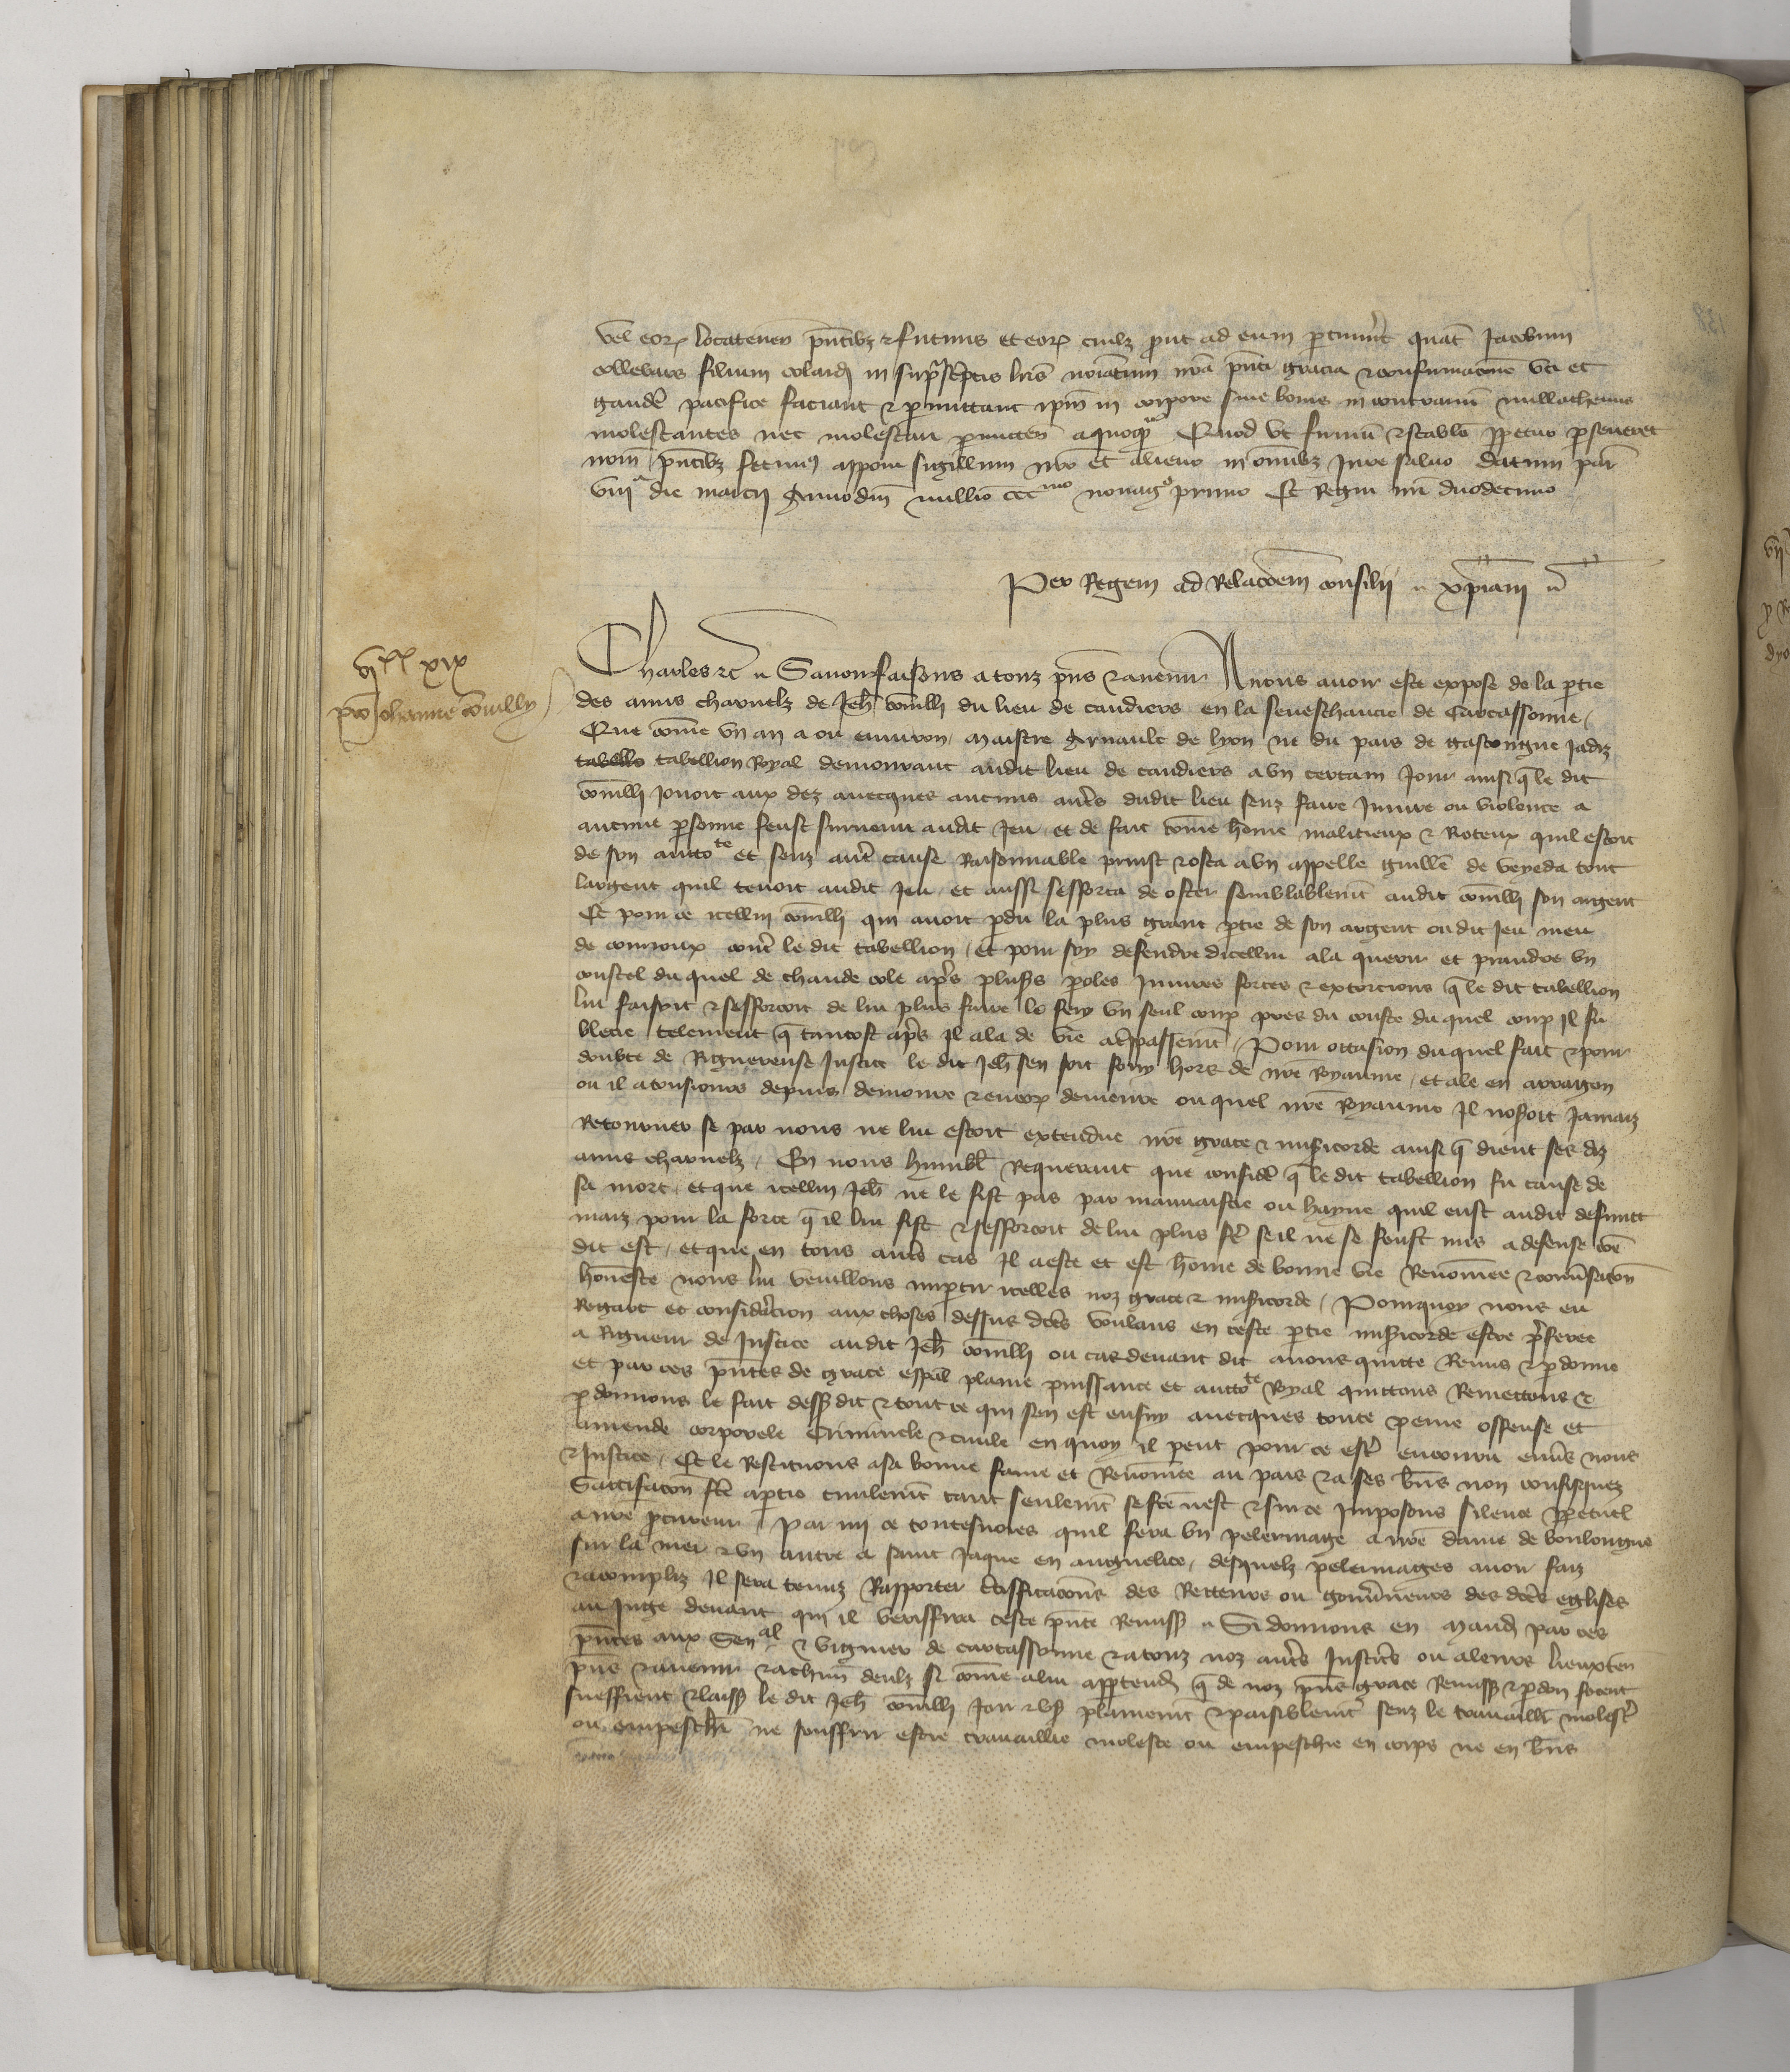 vel eor locatenen pntibz & futuris et eor cuilz prout ad eum ptinuit quat Jacobum
filium colardi in suprascriptis lris noiatum nra pnti gracia & confirmacione uti et
gaudere pacifice faciant & pmittant ipm in corpore sive bonis in contrarium nullathenus
molestantes nec molestari pmitten a quoqm Quod ut firmu & stabile ppetuo pseveret
nrm pntibz fecimus apponi sigillum nro et alieno in omnibz Jure salvo datum par
viija die marcii Anno dni millio ccc mo nonago primo Et Regni nri duodecimo
Per Regem ad Relacoem consilii xpiani
vijxx xix
pro Johanne comilly
Charles &c Savoir faisons a touz pns & avenir A nous avoir este expose de la ptie
des amis charnelz de Jeh comilh du lieu de caudiers en la seneschaucie de Carcassonne
Que come un an a ou environ maistre Arnault de lyon ne du pais de gascongne jadiz
tabello tabellion Royal demourant audit lieu de caudiers a un certain jour ainsi q le dit
comilh jouoit aux dez avecques aucuns autres dudit lieu senz faire Injure ou violence a
aucune psonne feust survenu audit Jeu et de fait come home malicieux & Roteux quil estoit
de son auctote et senz autre cause Raisonnable prinst & osta a un appelle guille de veyeda tout
largent quil tenoit audit Jeu et aussi sefforca de oster semblablement audit comilh son argent
Et pour ce icellui comilh qui avoit pdu la plus grant ptie de son argent oudit Jeu meu
de courroux contre le dit tabellion et pour soy defendre dicellui ala querir et prandre un
coustel du quel de chaude cole apres plus proles Injures forces & extorcions q le dit tabellion
lui faisoit & sefforcoit de lui plus faire le fery un seul coup pres du couste du quel coup Il fu
blecie telement q tantost apres Il ala de vie a trespassement Pour occasion du quel fait & pour
doubte de Rigueureuse Justice le dit Jeh sen soit fouy hors de nre Royaume et ale en arragon
ou il a tousjours depuis demoure & encor demeure ou quel nre Royaume Il nosoit Jamaiz
Retourner se par nous ne lui estoit extendue nre grace & misicorde ainsi q dient ses diz
amis charnelz En nous humbl Requerant que considere q le dit tabellion fu cause de
sa mort et que icellui Jeh ne le fist pas par mauvaistie ou hayne quil eust audit defunct
maiz pour la force q il lui fist & sefforcoit de lui plus fre se il ne se feust mis a defense coe
dit est et que en tous autres cas Il a este et est home de bonne vie Renommee & conversacon
honneste nous lui veuillons impartir icelles noz grace & misicorde Pourquoy nous eu
Regart et consideracion aux choses dessus dctes voulans en ceste ptie misicorde estre preferee
a Rigueur de Justice audit Jeh comilh ou cas devant dit avons quicte Remis & pdonne
et par ces pntes de grace espal plaine puissance et auctote Royal quittons Remettons &
pdonnons le fait dessusdit & tout ce qui sen est ensuy avecques toute peine offense et
amende corporele Criminele & civile en quoy il peut pour ce estre encouru envers nous
& Justice Et le Restituons a sa bonne fame et Renommee au pais & a ses bns non confisquez
Satisfacon fte a ptie civilement tant seulement se fte nest & sur ce Imposons silence ppetuel
a nre pcureur Par mi ce toutesvoies quil fera un pelerinage a nre dame de boulongne
sur la mer & un autre a saint Jaque en desquelz pelerinages avoir faiz
& acompliz Il sera tenuz Rapporter certifficacons des Recteurs ou gouverneurs des dctes eglises
au Juge devant qui il veriffira ceste pnte Remiss Si donnons en Mand par ces
pntes aux Senal & viguier de carcassonne & a touz noz autres Justiciers ou a leurs lieuxten
pns & avenir & a chun deulz si come a lui apptend q de noz pns grace Remiss & pdon facent
sueffrent & laiss le dit Jeh comilh Joir & user plainement & paisiblement senz le travaillr molester
ou empeschr ne souffrir estre travaillie moleste ou empeschie en corps ne en bns